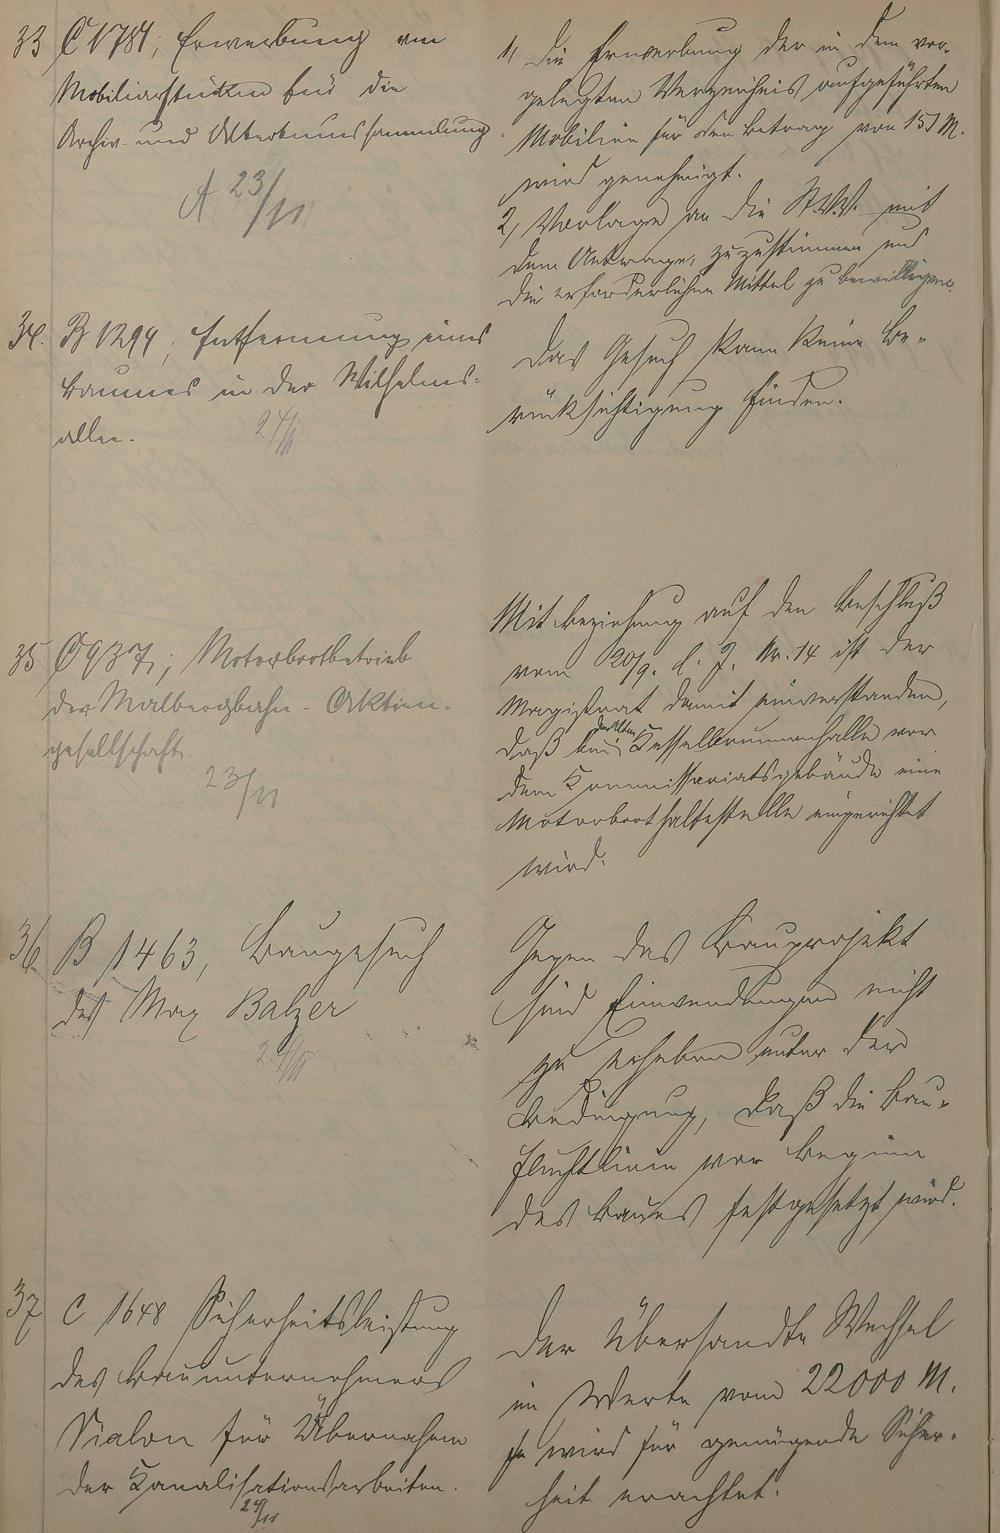 33 C 1781; Erwerbung von
Mobiliarstücken für die
Archiv- und Altertumssammlung.
A 23/11
1, Die Erwerbung der in dem vor-
gelegten Verzeichnis aufgeführten
Mobilien für den Betrag von 151 M.
wird genehmigt.
2, Vorlage an die St.V.V. mit
dem Antrage, zuzustimmen und
die erforderlichen Mittel zu bewilligen.
34. B 1294; Entfernung eines
Baumes in der Wilhelms-
allee.
24/11
Das Gesuch kann keine Be-
rücksichtigung finden.
35 C 937; Motorbootbetrieb
der Malbergbahn-Aktien-
gesellschaft.
23/11
Mit Beziehung auf den Beschluß
vom 20/9. l. J. Nr. 14 ist der
Magistrat damit einverstanden,
daß bei der alten Kesselbrunnenhalle vor
dem Kommissariatsgebäude eine
Motorboothaltestelle eingerichtet
wird.
36 B 1463, Baugesuch
des Max Balzer
24/11
Gegen das Bauprojekt
sind Einwendungen nicht
zu erheben unter der
Bedingung, daß die Bau-
fluchtlinie vor Beginn
des Baues festgesetzt wird.
37 C 1648 Sicherheitsleistung
des Bauunternehmers
Vialon für Übernahme
der Kanalisationsarbeiten.
24/11
Der übersandte Wechsel
im Werte von 22000 M.
wird für genügende Sicher-
heit erachtet.